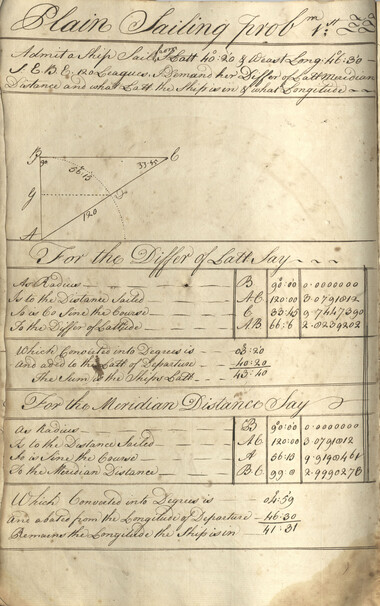 Plain Sailing prob.m 1.st
Admit a Ship Sails from Latt 40:20 & West Long: 46:30
120 Leagues, I Demand her Differ of Latt Meridian
Distance and what Latt the Ship is in & what Longitude
B 90 56.15 33.45 C
G
120
A
For the Differ of Latt Say
As Radius B 90:00 0.0000000
Is to the Distance Sailed AC 120:00 3.0791812
So is Co Sine the Course C 33:45 9.7447390
To the Differ of Latitude AB 66:6 2.8239202
Which Converted into Degrees is 03:20
And aded to the Latt of Departure 40:20
The Sum is the Ships Latt 43:40
For the Meridian Distance Say
As Radius B 90:00 0.0000000
Is to the Distance Sailed AC 120:00 3.0791812
So is Sine the Course A 56:15 9.9198464
To the Meridian Distance BC 99:8 2.9990276
Which Converted into Degrees is 04:59
And abated from the Longitude of Departure 46:30
Remains the Longitude the Ship is in 41:31